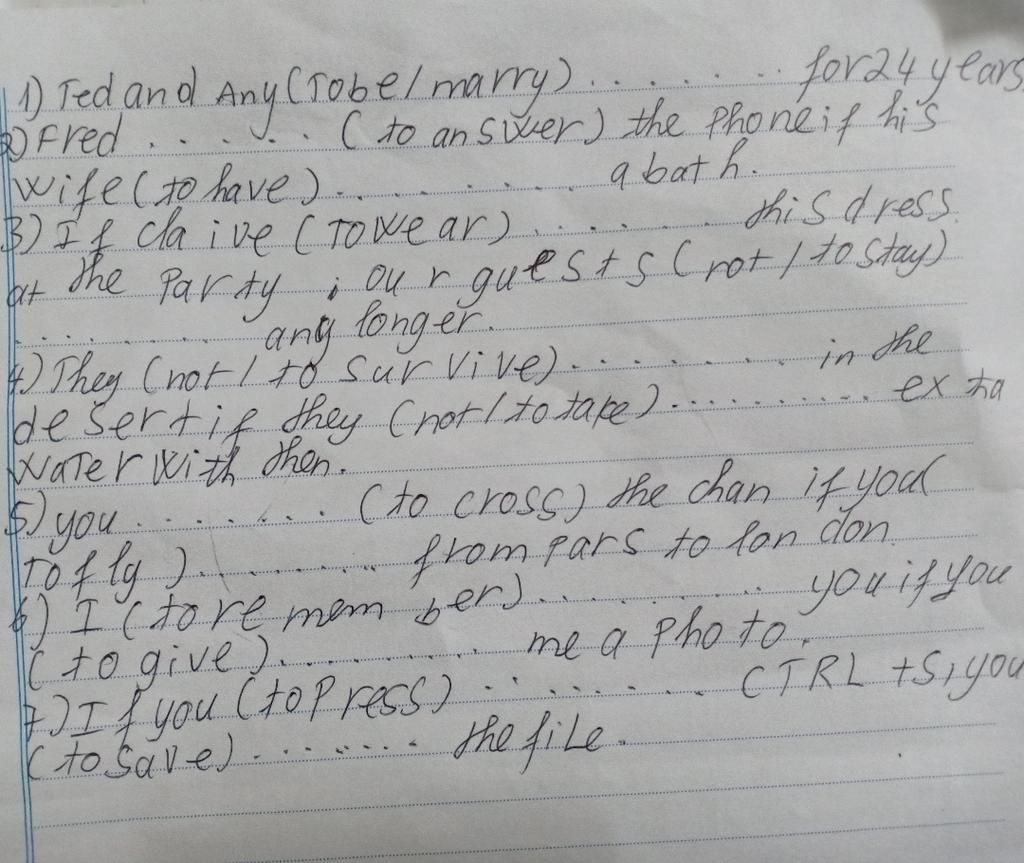 1) Ted and Any (Tobe/marry) . . . . . . . . for 24 years.
2) Fred . . . . . . (to answer) the phone if his
wife (to have) . . . . . . . . . a bath.
3) If claive (To wear) . . . . . . . . this dress.
at the Party ; our guests (not / to stay)
. . . . . . . . . any longer.
4) They (not / to survive) . . . . . . . . . in the
desert if they (not / to take) . . . . . . . . . . exta
water with then.
5) you . . . . . . . . (to cross) the chan if you (
To fly ) . . . . . . . . from pars to london.
6) I (to remember) . . . . . . . . . you if you
(to give) . . . . . . . . . me a photo.
7) If you (to press) . . . . . . . . CTRL +S, you
(to save) . . . . . . . the file.